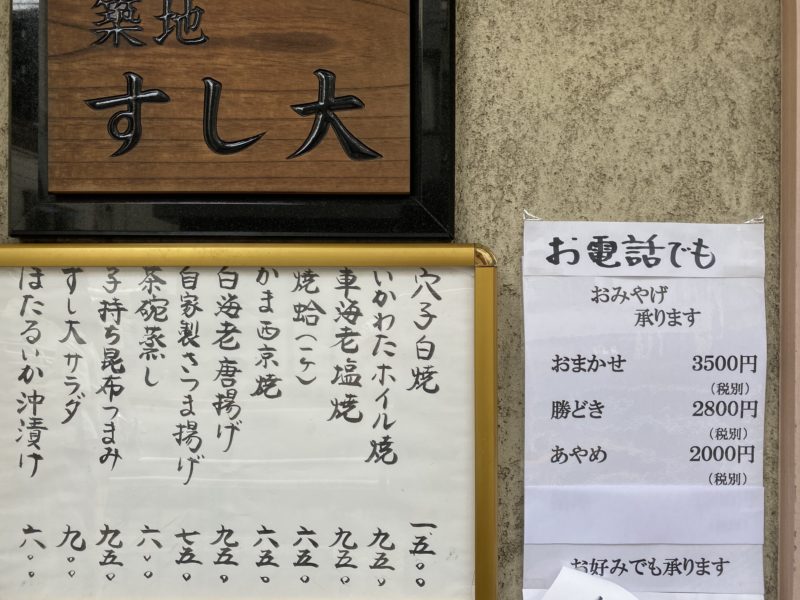 築地
すし大
穴子白焼 一五〇〇
いかわたホイル焼 九五〇
車海老塩焼 九五〇
焼蛤(一ヶ) 六五〇
かま西京焼 六五〇
白海老唐揚げ 九五〇
自家製さつま揚げ 七五〇
茶碗蒸し 六〇〇
子持ち昆布つまみ 九五〇
すし大サラダ 九〇〇
ほたるいか沖漬け 六〇〇
お電話でも
おみやげ
承ります
おまかせ 3500円
(税別)
勝どき 2800円
(税別)
あやめ 2000円
(税別)
お好みでも承ります